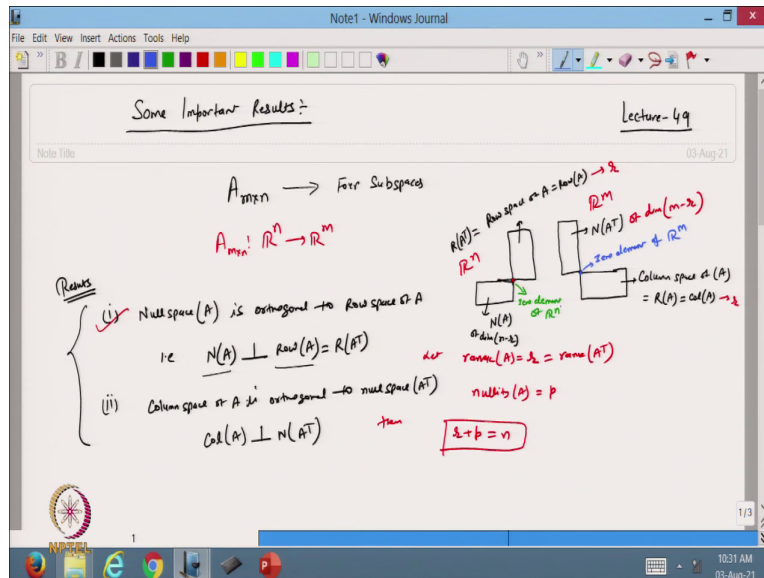 Note1 - Windows Journal
File Edit View Insert Actions Tools Help
Some Important Results:-
Lecture-49
Note Title
03-Aug-21
A m×n → Four Subspaces
A m×n : ℝⁿ → ℝᵐ
R(AT) = Row space of A = Row(A) → r
ℝⁿ
ℝᵐ
→ N(AT) of dim (m-r)
→ Zero element of ℝᵐ
→ Column space of (A)
= R(A) = Col(A) → r
Zero element
of ℝⁿ
N(A)
of dim (n-r)
Results
(i) Nullspace(A) is orthogonal to Row space of A
i.e N(A) ⊥ Row(A) = R(AT)
(ii) Column space of A is orthogonal to null space(AT)
Col(A) ⊥ N(AT)
Let rank(A) = r = rank(AT)
nullity(A) = p
then r+p = n
NPTEL
1
1/3
10:31 AM
03-Aug-21